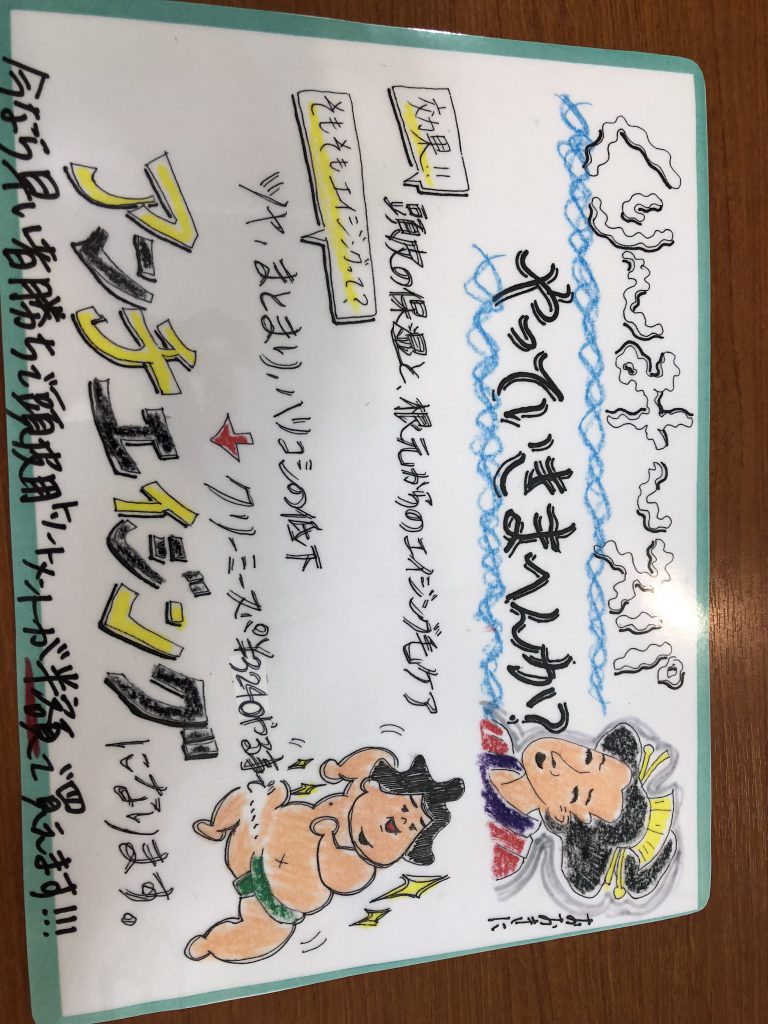 くりーみーすぱ
やっていきまへんか？
おおきに
効果!!
頭皮の保湿と、根元からのエイジング毛ケア
そもそもエイジングって？
ツヤ、まとまり、ハリコシの低下
クリーミースパ¥3240やる事で……
アンチエイジングになります。
今なら早い者勝ちで頭皮用トリートメントが半額で買えます!!!